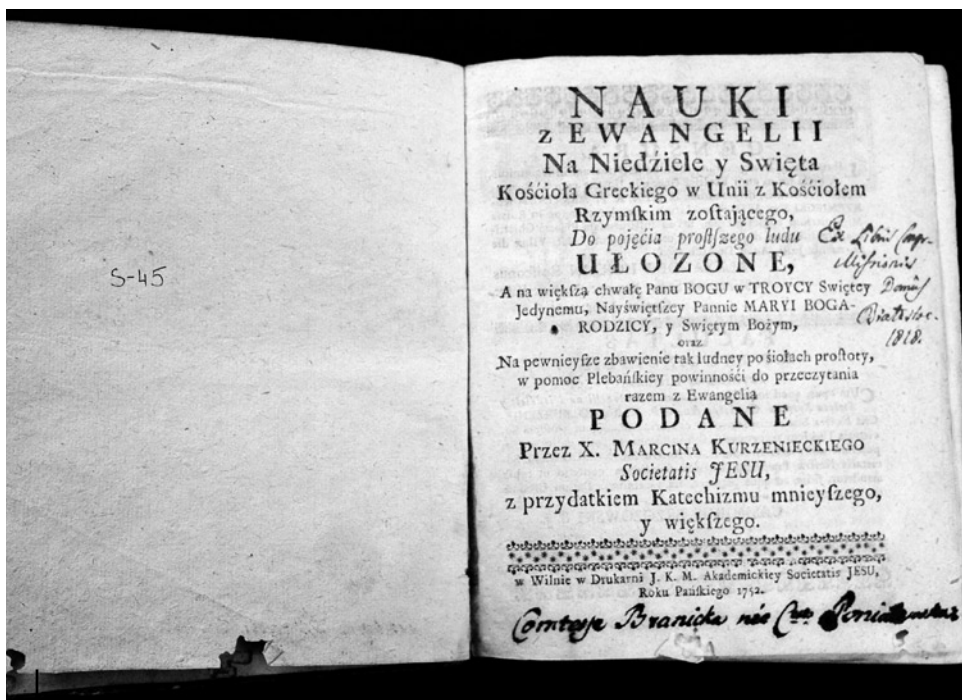 S-45
NAUKI
z EWANGELII
Na Niedźiele y Swięta
Kośćioła Greckiego w Unii z Kośćiołem
Rzymſkim zoſtającego,
Do pojęćia proſtſzego ludu
UŁOZONE,
A na większą chwałę Panu BOGU w TROYCY Swiętey
Jedynemu, Nayświętſzey Pannie MARYI BOGA-
RODZICY, y Swiętym Bożym,
oraz
Na pewnieyſze zbawienie tak ludney po śiołach proſtoty,
w pomoc Plebańſkiey powinnośći do przeczytania
razem z Ewangelią
PODANE
Przez X. MARCINA KURZENIECKIEGO
Societatis JESU,
z przydatkiem Katechizmu mnieyſzego,
y większego.
w Wilnie w Drukarni J. K. M. Akademickiey Societatis JESU,
Roku Pańſkiego 1752.
Ex Libris Congr.
Missionis
Domûs
Białẏstoc.
1818.
Comtesse Branicka née Ctesse Poniatowska